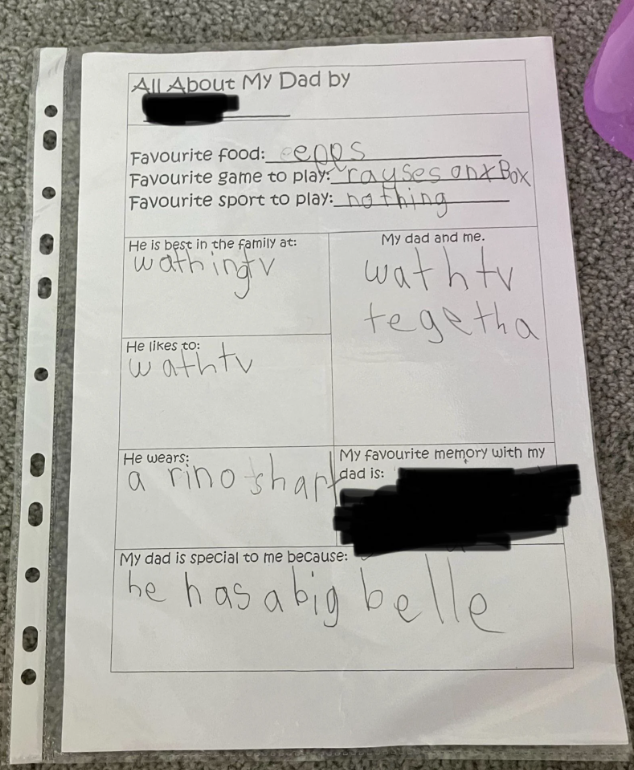 All About My Dad by
Favourite food: epps
Favourite game to play: rayses onx Box
Favourite sport to play: nothing
He is best in the family at:
wathingtv
My dad and me.
wathtv
tegetha
He likes to:
wathtv
He wears:
a rino shart
My favourite memory with my
dad is:
My dad is special to me because:
he has a big belle